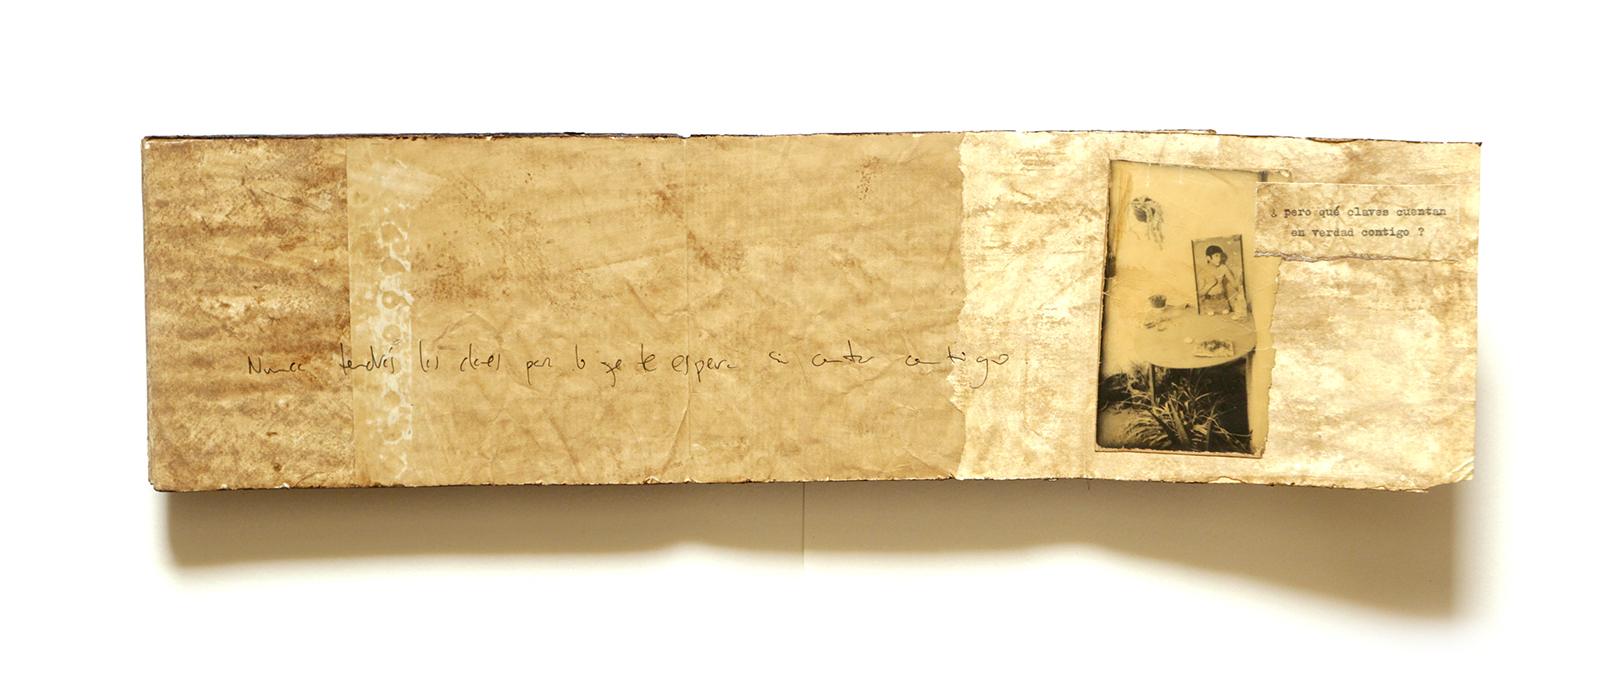 Nunca tendrás las claves para lo que te espera sin contar contigo
¿ pero qué claves cuentan
en verdad contigo ?